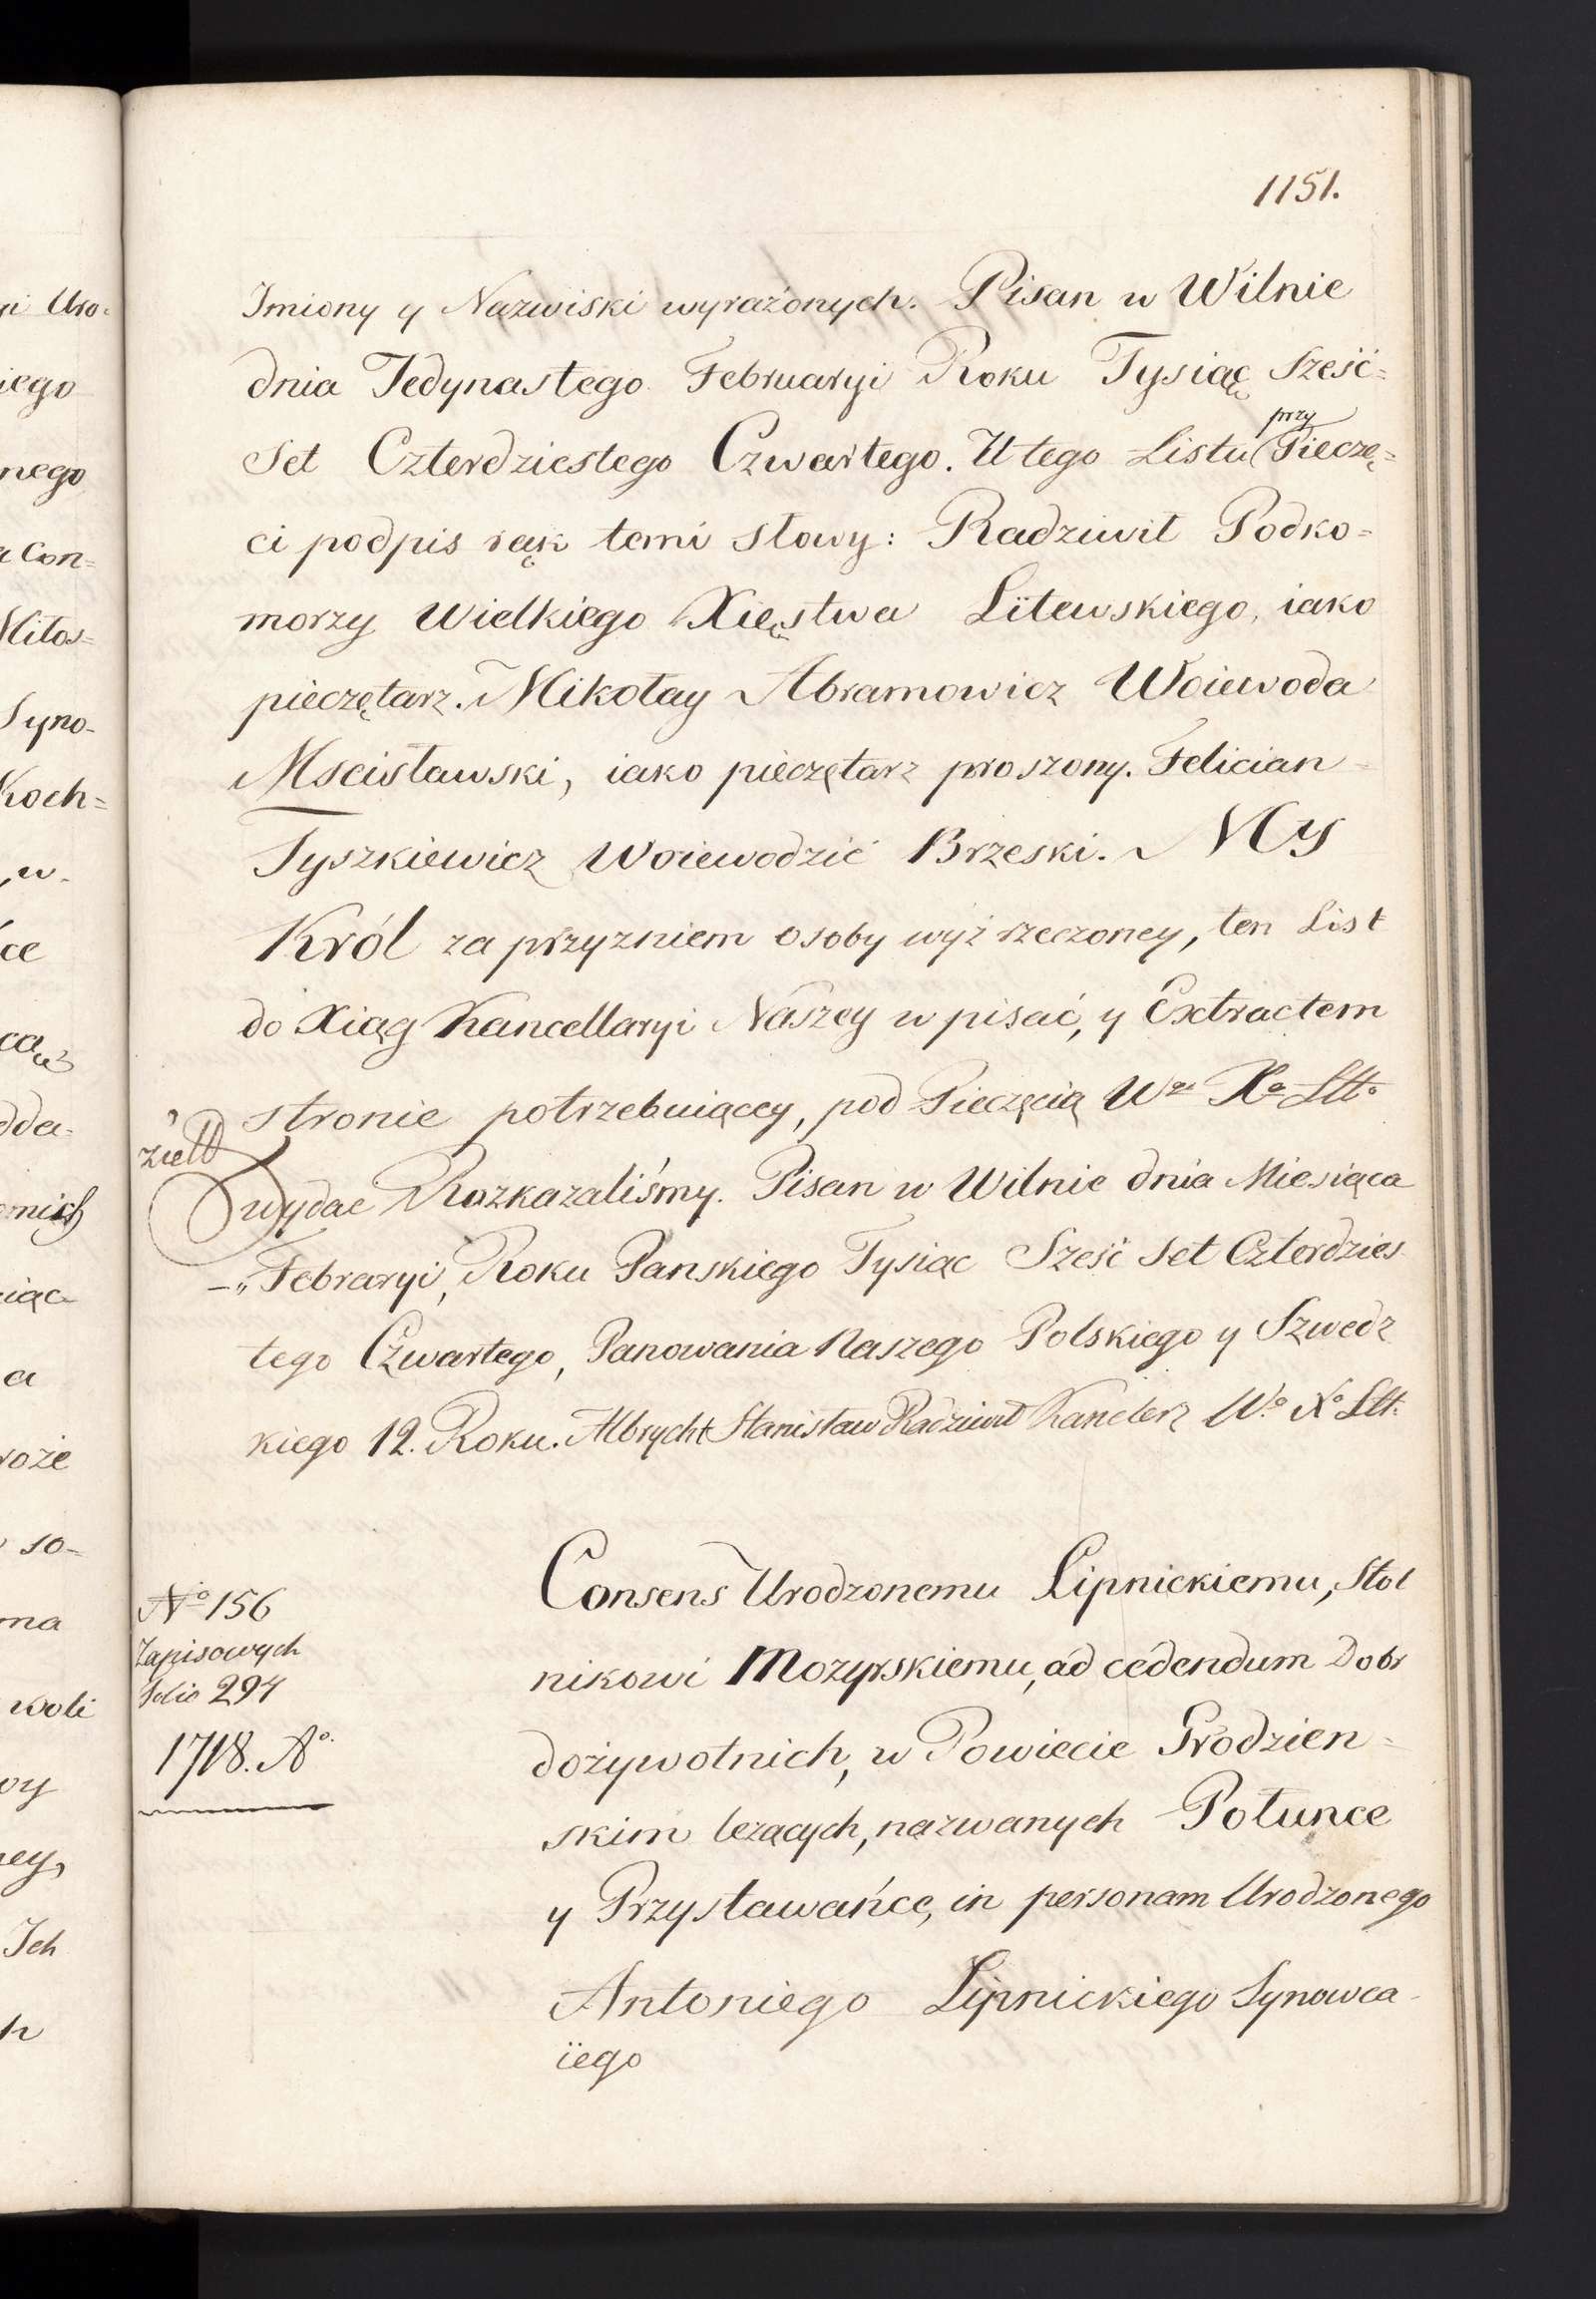 1151.
Imiony y Nazwiski wyrażonych. Pisan w Wilnie
dnia Jedynastego Februaryi Roku Tysiąc Sześć=
Set Czterdziestego Czwartego. U tego Listu przy Pieczę=
ci podpis rąk temi Słowy: Radziwił Podko=
morzy Wielkiego Xięstwa Litewskiego, iako
pieczętarz. Mikołay Abramowicz Woiewoda
Mscisławski, iako pieczętarz proszony. Felician
Tyszkiewicz Woiewodzić Brzeski. My
Król za przyzniem osoby wyż rzeczoney, ten List
do Xiąg Kancellaryi Naszey w pisać, y Extractem
stronie potrzebuiącey, pod Pieczęcią Wgo Xa Litt°
wydac Rozkazaliśmy. Pisan w Wilnie dnia Miesiąca
Februaryi, Roku Panskiego Tysiąc Sześć Set Czterdzies
tego Czwartego, Panowania Naszego Polskiego y Szwedz
kiego 12. Roku. Albrycht Stanisław Radziwił Kanclerz W° X° Litt.
N° 156
Zapisowych
folio 294
1718. A°
Consens Urodzonemu Lipnickiemu, Stol
nikowi Mozyrskiemu, ád cedendum Dobr
dożywotnich, w Powiecie Grodzien=
skim lezących, nazwanych Połunce
y Przystawańce, in personam Urodzonego
Antoniego Lipnickiego Synowca
iego
Uro=
iego
nego
Con=
Miłos=
Syno-
Koch=
w
ce
dda=
iąc
a
roże
so=
ma
woli
ey,
Ich